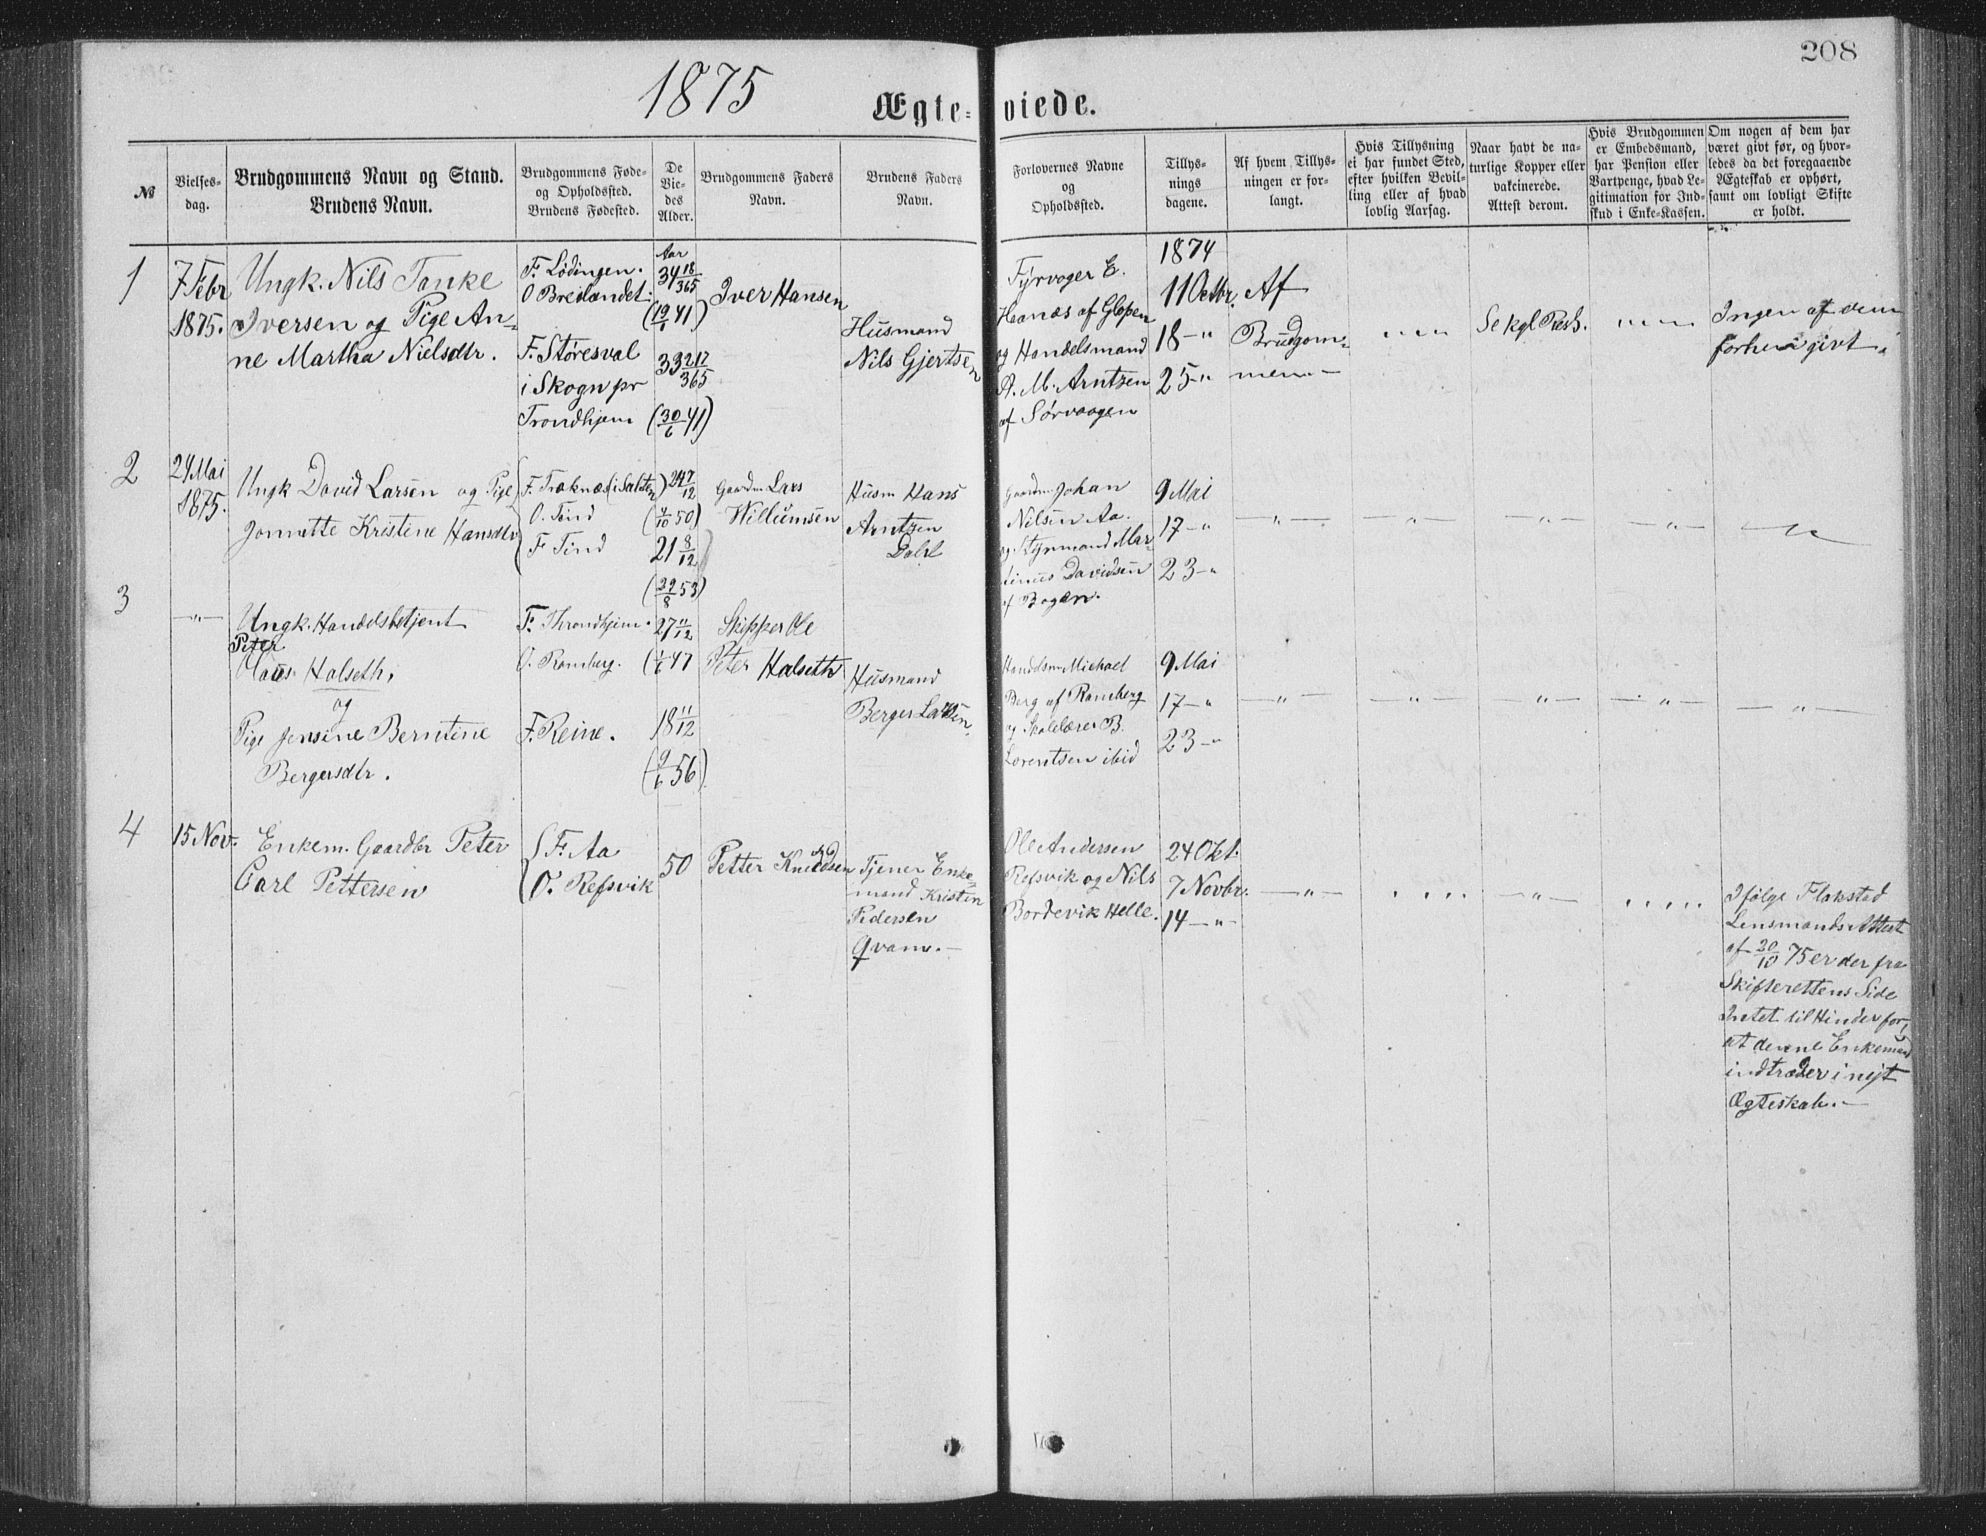 208
1875
Ægteviede.
№
Vielses-
dag.
Brudgommens Navn og Stand.
Brudens Navn.
Brudgommens Føde-
og Opholdssted.
Brudens Fødested.
De
Vie-
des
Alder.
Brudgommens Faders
Navn.
Brudens Faders
Navn.
Forlovernes Navne
og
Opholdssted.
Tillys-
nings
dagene.
Af hvem Tillys-
ningen er for-
langt.
Hvis Tillysning
ei har fundet Sted,
efter hvilken Bevil-
ling eller af hvad
lovlig Aarsag.
Naar havt de na-
turlige Kopper eller
vakcinerede.
Attest derom.
Hvis Brudgommen
er Embedsmand,
har Pension eller
Vartpenge, hvad Le-
gitimation for Ind-
skud i Enke-Kassen.
Om nogen af dem har
været givt før, og hvor-
ledes da det foregaaende
Ægteskab er ophørt,
samt om lovligt Skifte
er holdt.
1
7 Febr
1875.
Ungk. Nils Tanke
Iversen og Pige An-
ne Martha Nielsdtr.
F. Lødingen.
O Bredandet.
F. Støresval
i Skogn pr
Trondhjem
Aar
34 18/365
(19/1 41)
33 217/365
(30/6 41)
Iver Hansen
Husmand
Nils Gjertsen
Fyrvoger E.
Haanæs af Glopen
og Handelsmand
A. M. Arntzen
af Sørvaagen
1874
11 Octbr.
18 - "
25 - "
Af
Brudgom-
men -
" " "
Se kgl Resk.
" " "
Ingen af dem
forhen givt.
2
24 Mai
1875.
Ungk David Larsen og Pige
Jonnette Kristine Hansdtr
F. Træknæs (i Salten)
O. Tind
F Tind
24 7/12
(4/10 50)
21 8/12
(29/8 53)
Gaardm Lars
Willumsen
Husm Hans
Arntzen
Dahl
Gaardm Johan
Nilsen Aa.
og Styrmand Mar-
tinus Davidsen
af Bogen.
9 Mai
17 - "
23 - "
- " -
- " -
- " -
- " -
3
- " -
Ungk. Handelsbetjent
Peter
Claus Halseth,
og
Pige Jensine Berntine
Bergersdtr.
F. Throndhjem.
O. Ramberg.
F. Reine.
27 11/12
(1/6 47
18 11/12
(9/6 56)
Skipper Ole
Peter Halseth
Husmand
Berger Larsen
Handelsm Michael
Berg af Ramberg
og Skolelærer B.
Lorentsen ibid
9 Mai
17 - "
23 - "
- " -
- " -
- " -
- " -
- " -
4
15 Nov.
Enkem. Gaardbr Peter
Carl Pettersen
F. Aa
O. Refsvik
50
Petter Knudsen
Tjener Enke-
mand Kristen
Pedersen
Qvam. -
Ole Andersen
Refsvik og Nils
Bordevik Helle.
24 Okt.
7 Novbr.
14 - " -
- " -
" " " "
- " -
" " " " "
Ifølge Flakstad
Lensmands Attest
af 20/10 75 er der fra
Skifterettens Side
Intet til Hinder for,
at denne Enkemand
indtræder i nyt
Ægteskab. -